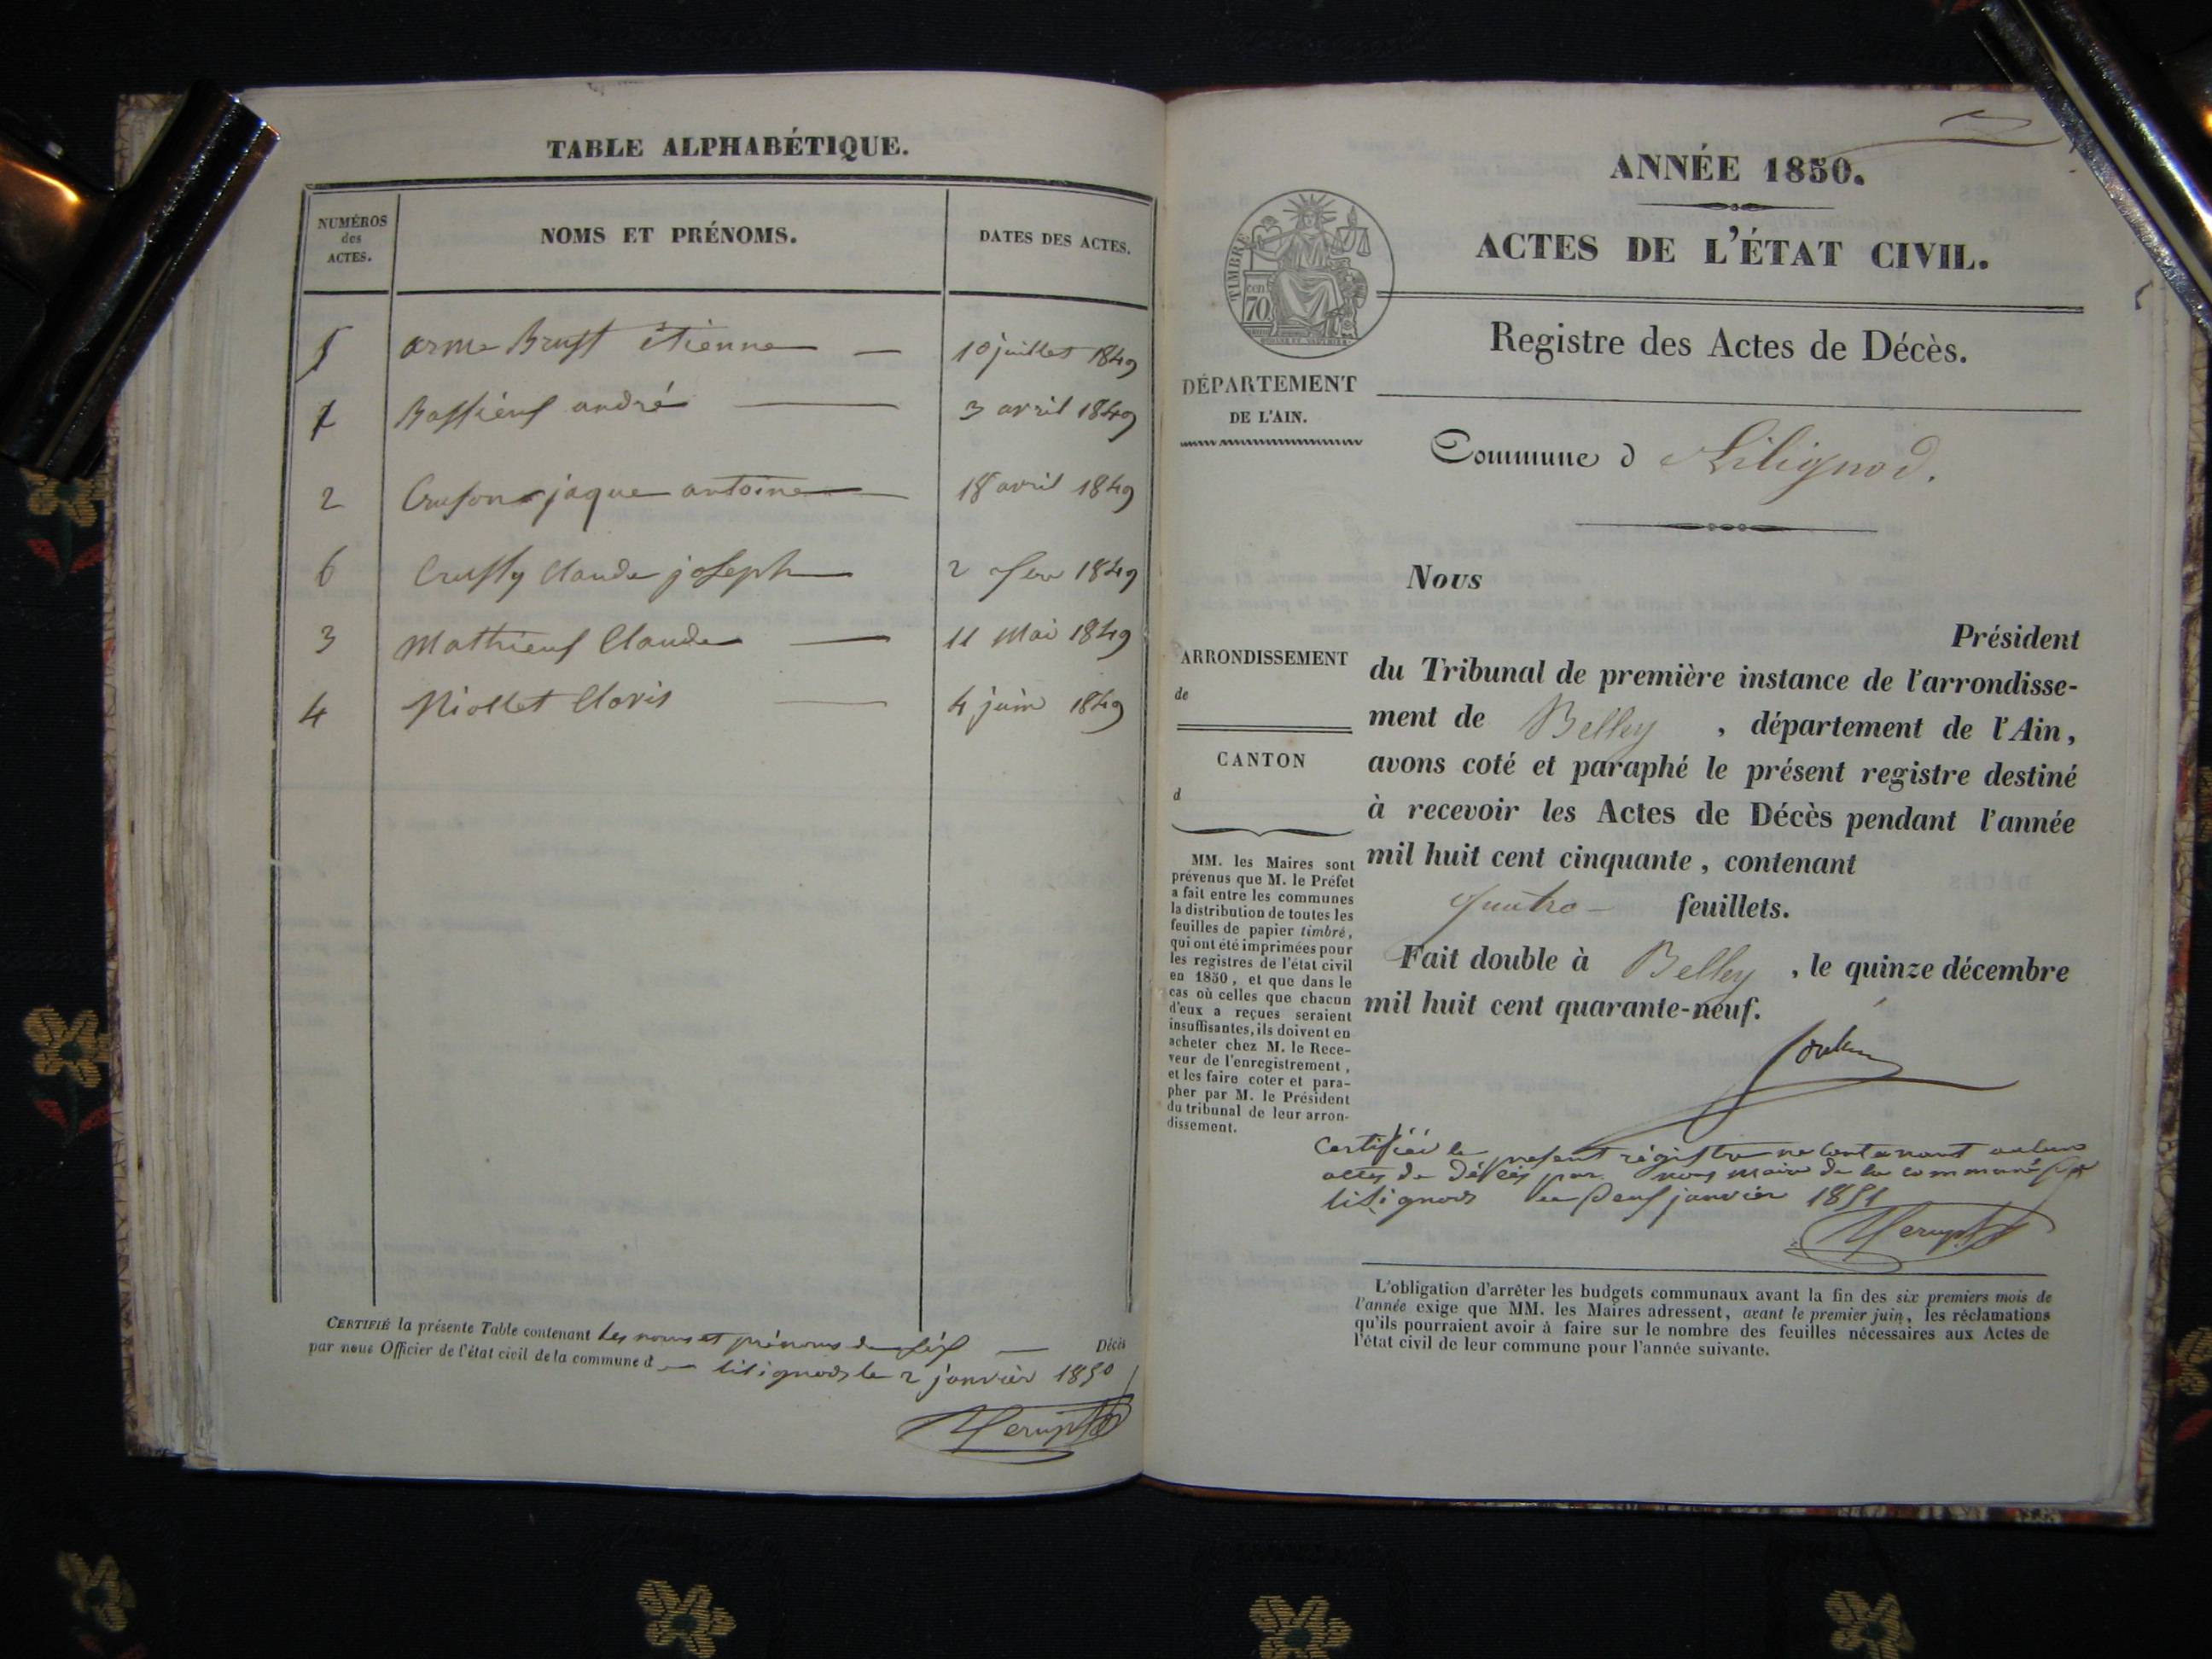 TABLE ALPHABÉTIQUE.
NUMÉROS
des
ACTES.
NOMS ET PRÉNOMS.
DATES DES ACTES.
5 étienne 10 juillet 1849
1 andré 3 avril 1849
2 jaque antoine 18 avril 1849
6 Claude joseph 2 1849
3 Mathieuf Claude 11 Mai 1849
4 Niollet Clovis 4 juin 1849
CERTIFIÉ la présente Table contenant les noms et prénoms de Décès
par nous Officier de l'état civil de la commune d lilignod le 2 janvier 1850
ANNÉE 1850.
ACTES DE L'ÉTAT CIVIL.
TIMBRE
cen
70
Registre des Actes de Décès.
DÉPARTEMENT
DE L'AIN.
Commune d Lilignod.
Nous
Président
du Tribunal de première instance de l'arrondisse-
ment de Belley, département de l'Ain,
avons coté et paraphé le présent registre destiné
à recevoir les Actes de Décès pendant l'année
mil huit cent cinquante, contenant
quatre feuillets.
Fait double à Belley, le quinze décembre
mil huit cent quarante-neuf.
ARRONDISSEMENT
de
CANTON
d
MM. les Maires sont
prévenus que M. le Préfet
a fait entre les communes
la distribution de toutes les
feuilles de papier timbré,
qui ont été imprimées pour
les registres de l'état civil
en 1850, et que dans le
cas où celles que chacun
d'eux a reçues seraient
insuffisantes, ils doivent en
acheter chez M. le Rece-
veur de l'enregistrement,
et les faire coter et para-
pher par M. le Président
du tribunal de leur arron-
dissement.
Certifié le present régistre ne contenant aucune
actes de Décès par nous maire de la commune
lilignod le janvier 1851
L'obligation d'arrêter les budgets communaux avant la fin des six premiers mois de
l'année exige que MM. les Maires adressent, avant le premier juin, les réclamations
qu'ils pourraient avoir à faire sur le nombre des feuilles nécessaires aux Actes de
l'état civil de leur commune pour l'année suivante.